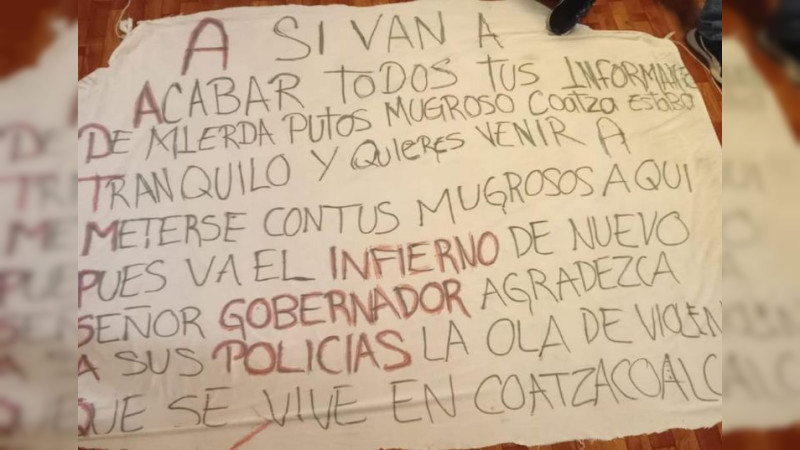 A SI VAN A
ACABAR TODOS TUS INFORMANTE
DE MIERDA PUTOS MUGROSO COATZA ESTABA
TRANQUILO Y QUIERES VENIR A
METERSE CONTUS MUGROSOS AQUI
PUES VA EL INFIERNO DE NUEVO
SEÑOR GOBERNADOR AGRADEZCA
A SUS POLICIAS LA OLA DE VIOLEN
QUE SE VIVE EN COATZACOALC